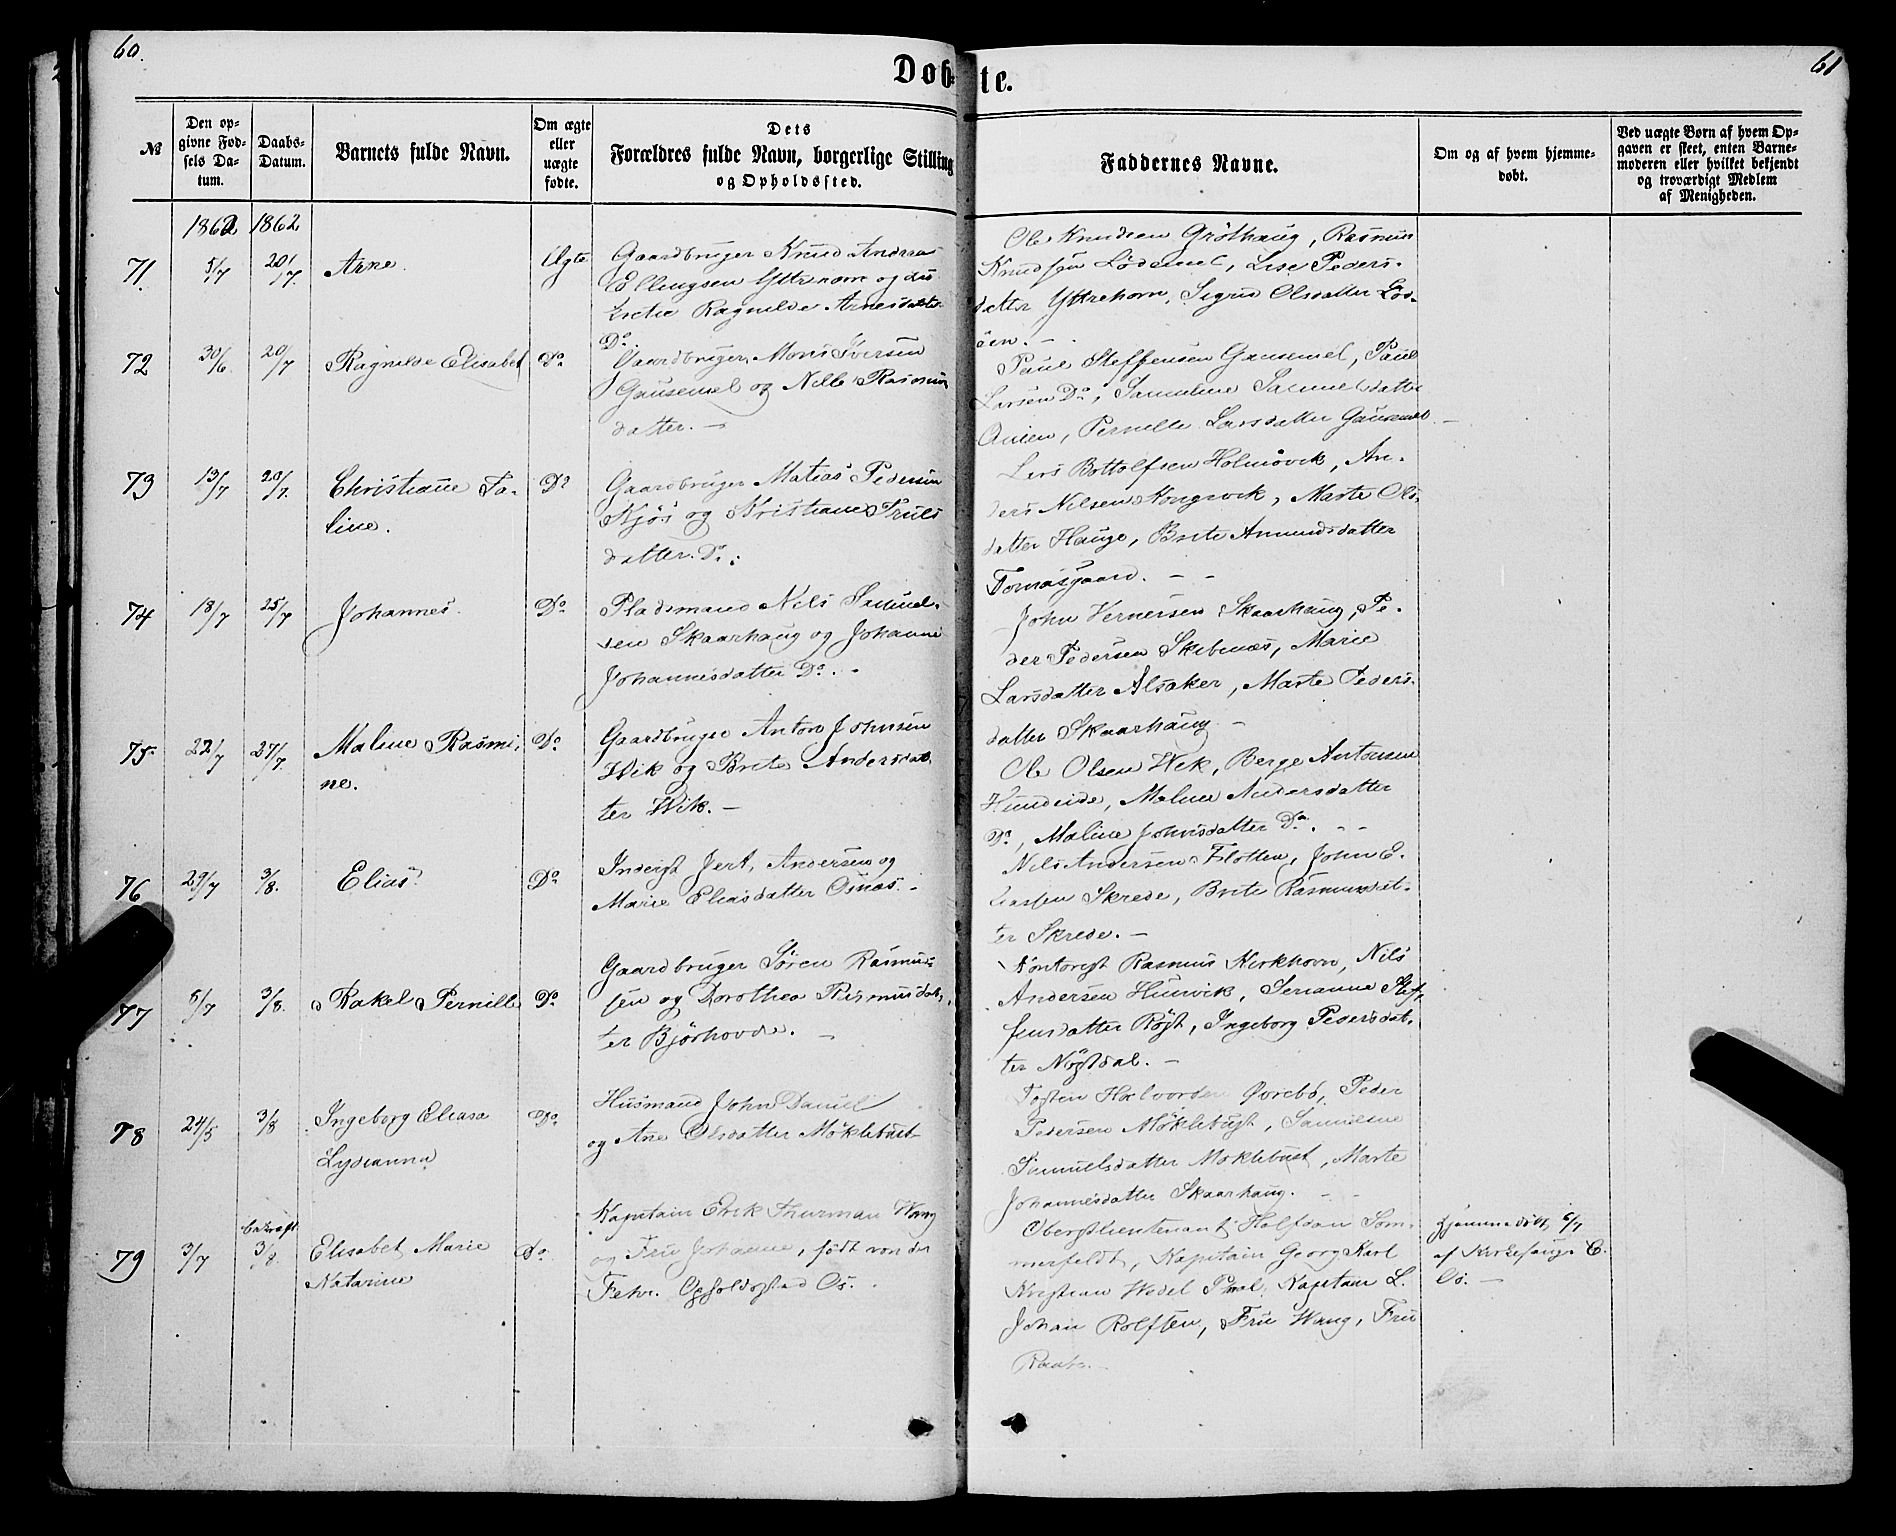 60.
61
Døbte.
№
Den opgivne Fødsels Datum.
Daabs-Datum.
Barnets fulde Navn.
Om ægte eller uægte fødte.
Dets Forældres fulde Navn, borgerlige Stilling og Opholdssted.
Faddernes Navne.
Om og af hvem hjemmedøbt.
Ved uægte Børn af hvem Opgaven er skeet, enten Barnemoderen eller hvilket bekjendt og troværdigt Medlem af Menigheden.
1862 1862
71 5/7 20/7 Arne. Ægte
Gaardbruger Knud Andreas
Ellingsen Yttrehorn og
Ragnilde Arnesdatter
Do.
Ole Knudsen Grøthaug, Rasmus
Knudsen Lødemel, Lise Peders-
datter Yttrehorn, Sigrid Olsdatter Lød-
öen. -
72 30/6 20/7 Ragnilde Elisabet Do
Gaardbruger Mons Iversen
Gausemel og Nille Rasmus
datter. -
Paul Steffensen Gausemel, Paul
Larsen Do, Samuline Samuelsdatter
Pernille Larsdatter Gausemel. -
73 13/7 20/7 Christiane Ta-
line. Do
Gaardbruger Matias Pedersen
Kjøs og Kristiane Truls
datter Do.
Lars Bottolfsen Holmøvik, An-
ders Nilsen Kongsvik, Marte Ols
datter Hauge, Brite Amundsdatter
Tomasgaard. - -
74 18/7 25/7 Johannes. Do
Pladsmand Nils Samuel-
sen Skaarhaug og Johanne
Johannesdatter Do. -
John Vernersen Skaarhaug, Pe-
der Pedersen Skibenæs, Marie
Larsdatter Alsaker, Marte Peders-
datter Skaarhaug. -
75 22/7 27/7 Malene Rasmi-
ne. Do
Gaardbruger Anton Johnsen
Wik og Brite Andersdat-
ter Wik. -
Ole Olsen Wik, Berge Antonsen
Hundeide, Malene Andersdatter
Do, Maline Johnsdatter Do. - -
76 29/7 3/8. Elias. Do
Inderst Jert. Andersen og
Marie Eliasdatter Osnæs. -
Nils Andersen Flotten, John E-
liassen Skrede, Brite Rasmusdat-
ter Skrede. -
77 6/7 3/8. Rakel Pernille Do
Gaardbruger Søren Rasmus-
sen og Dorothea Rasmusdat-
ter Bjørhovde. -
Kontorist Rasmus Kirkhorn, Nils
Andersen Hunvik, Serianne Stef-
fensdatter Røyst, Ingeborg Pedersdat-
ter Nøstdal. -
78 24/5 3/8 Ingeborg Eliasa
Lydianna Do
Husmand John Daniel
og Ane Olsdatter Møklebust
Tosten Halvorden Øvrebø, Peder
Pedersen Møklebust, Samuline
Samuelsdatter Møklebust, Marte
Johannesdatter Skaarhaug. - -
79 3/7 bekræft. 3/8. Elisabet Marie
Katarine Do
Kapitain Erik Thurman Wang
og Fru Johanne, født von der
Fehr. Opholdssted Os.
Oberstlieutenant Halfdan Som-
merfeldt, Kapitain Georg Karl
Kristian Wedel Prral, Kapitain L.
Johan Rolfsen, Fru Wang, Fru
Hjemmedøbt 6/7
af Kirkesanger C.
Os. -